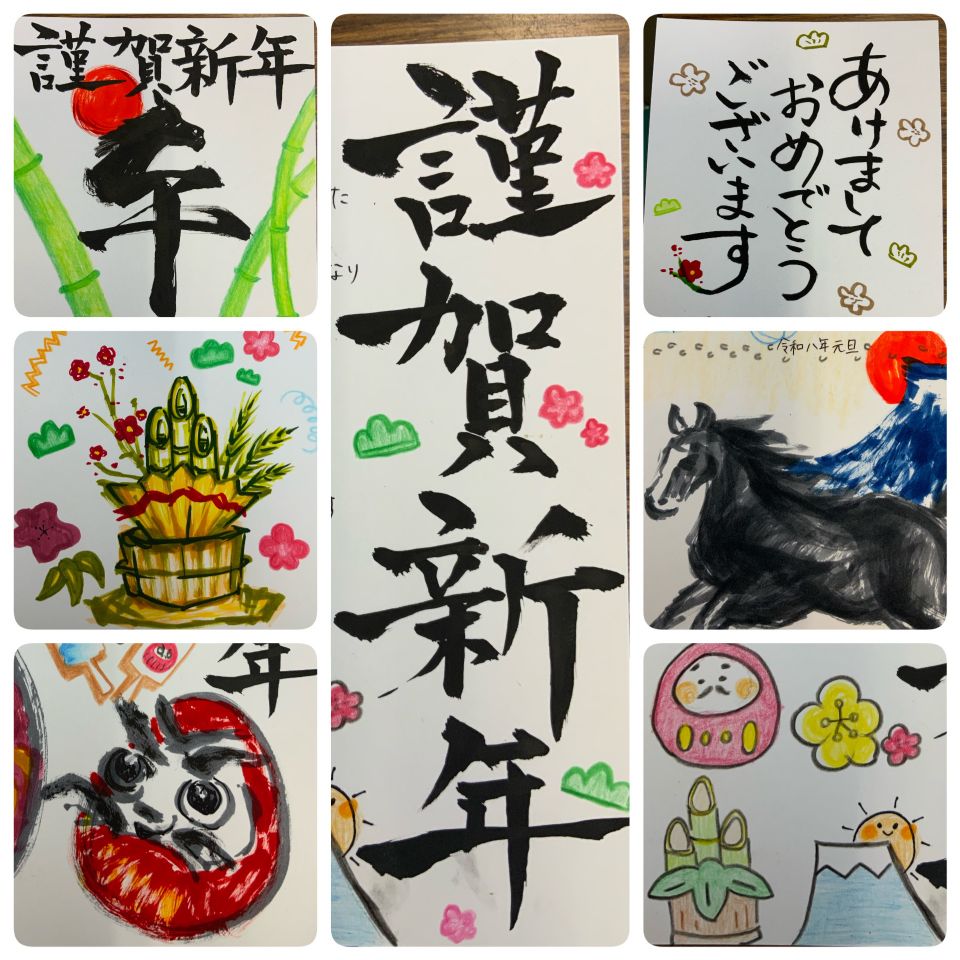 謹賀新年
午
謹賀新年
た
なり
あけまして
おめでとう
ございます
令和八年元旦
年